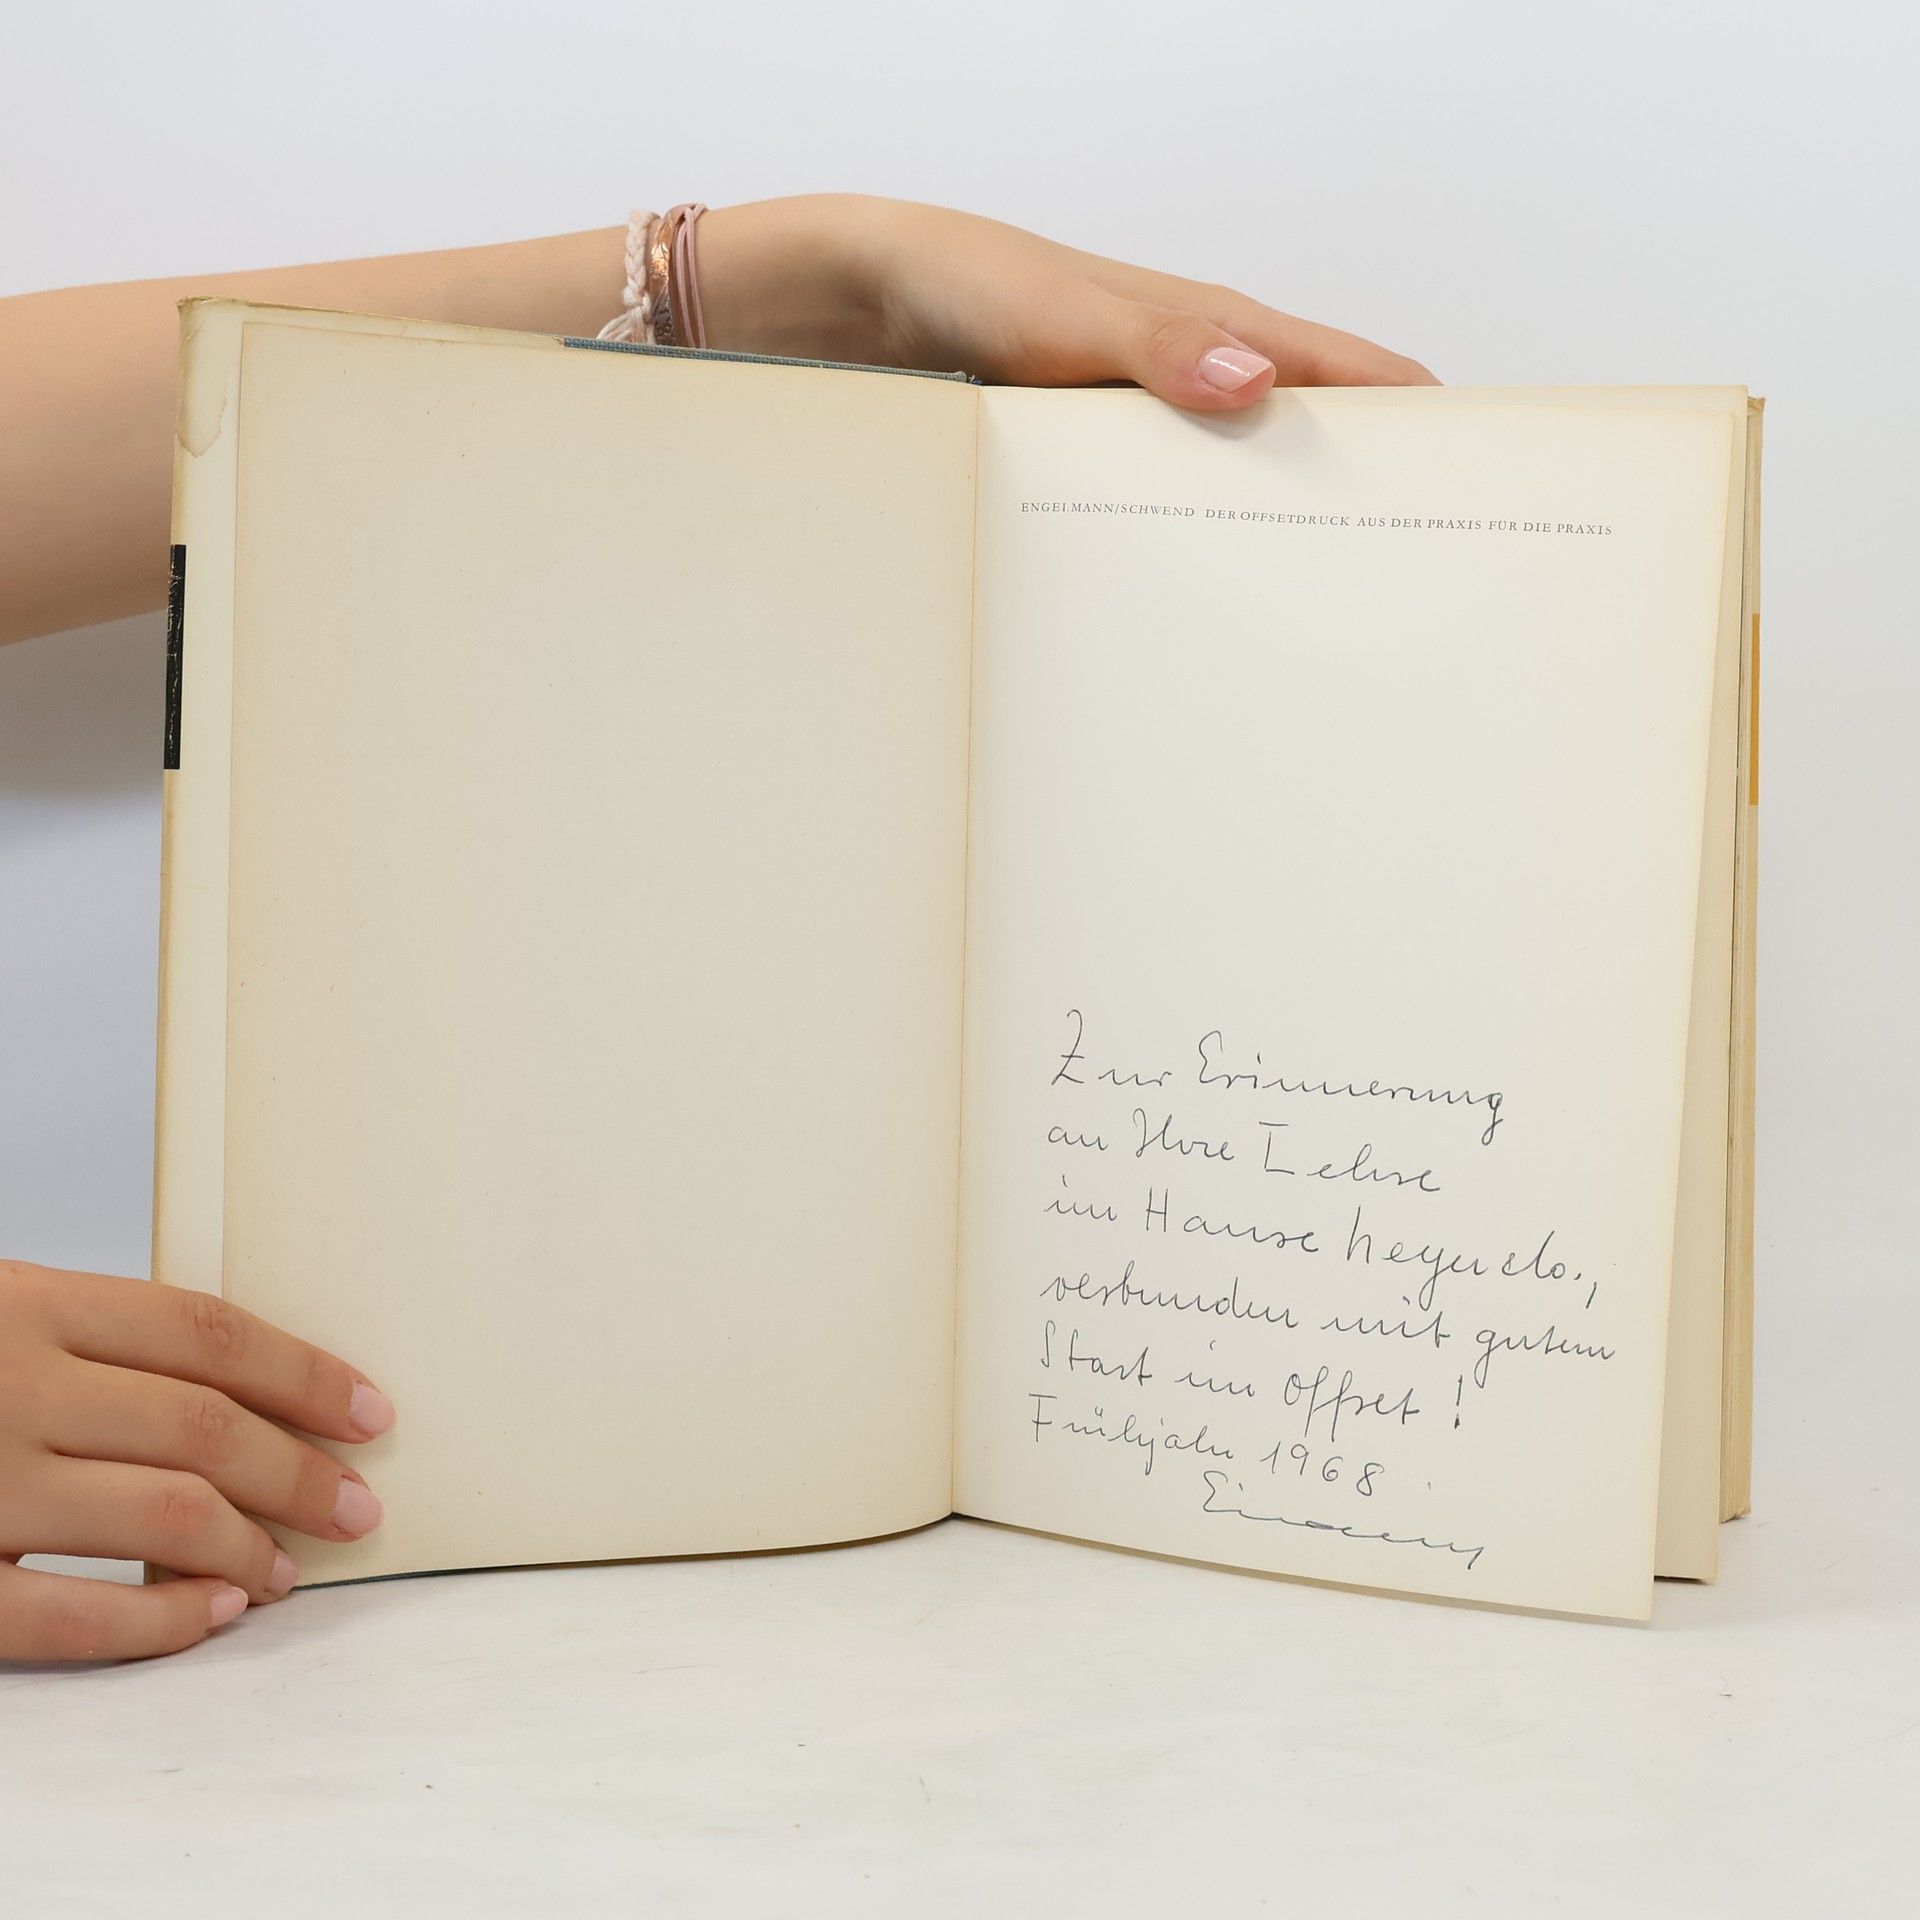 ENGELMANN/SCHWEND DER OFFSETDRUCK AUS DER PRAXIS FÜR DIE PRAXIS
Zur Erinnerung
an Ihre Lehre
im Hause
verbunden mit gutem
Start im Offset !
Frühjahr 1968